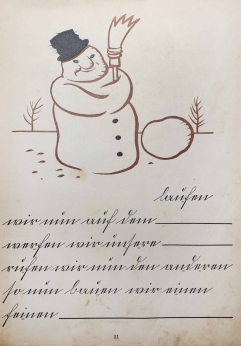 laufen
wir nun auf dem
werfen wir unsere
rufen wir nun den anderen
so nun bauen wir einen
feinen
11